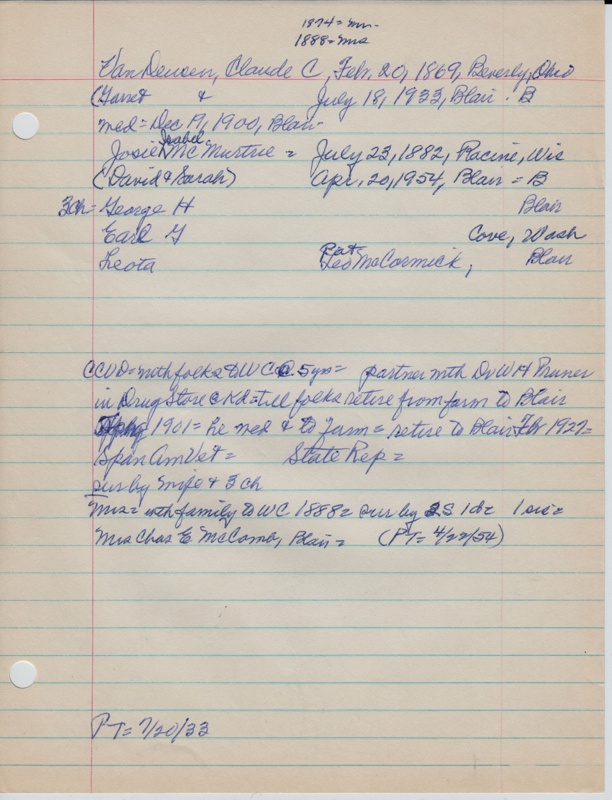 1874 = Mr.
1888 = Mrs
Van Deusen, Claude C, Feb. 20, 1869, Beverly, Ohio
(Garret & July 18, 1933, Blair - B
med = Dec 19, 1900, Blair -
Isabel
Josie McMurtrie = July 23, 1882, Racine, Wis
(David & Sarah) Apr. 20, 1954, Blair = B
3ch = George H Blair
Earl G Cove, Wash
Pat
Leota Leo McCormick, Blair
CCVD = with folks to WC @ 5 yrs = partner with Dr WH Pruner
in Drug Store @ Kd = till folks retire from farm to Blair
1901 = he med & to farm = retire to Blair Feb 1927 =
Span Am Vet = State Rep =
sur by wife & 3 ch
Mrs = with family to WC 1888 = sur by 2S 1d = 1 sis =
Mrs Chas E McComb, Blair = (PT = 4/22/54)
PT = 7/20/33